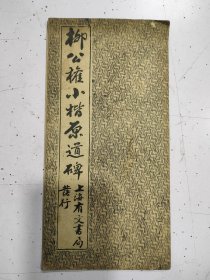 柳公權小楷原道碑
上海有文書局
發行